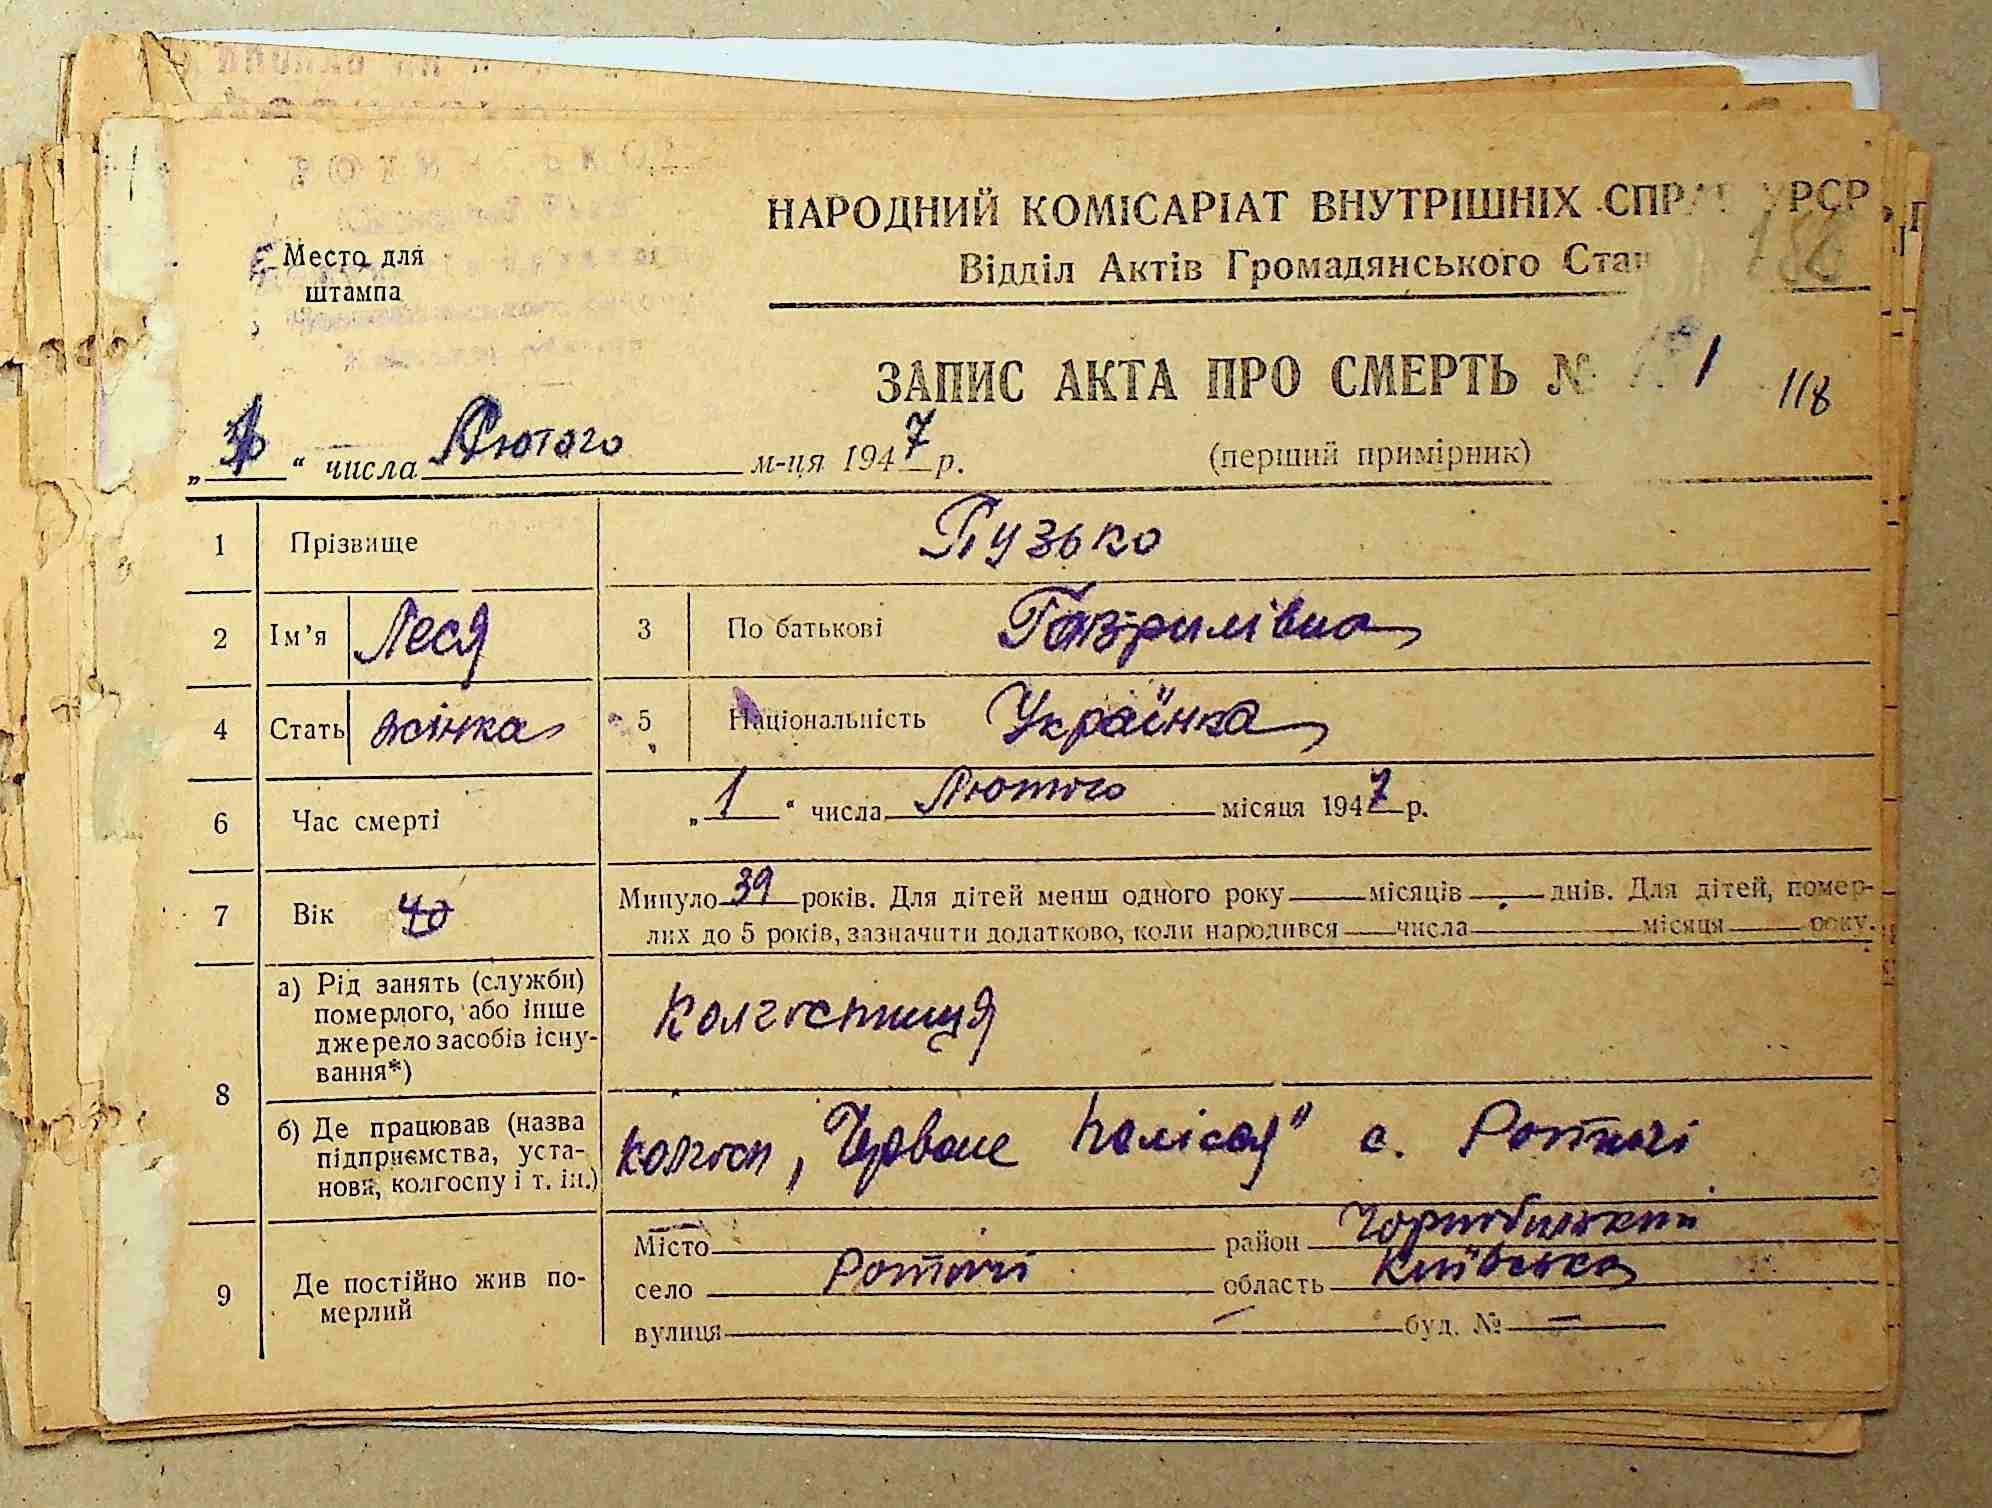 НАРОДНИЙ КОМІСАРІАТ ВНУТРІШНІХ СПРАВ УРСР
Відділ Актів Громадянського Стан
Место для
штампа
ЗАПИС АКТА ПРО СМЕРТЬ № 1
118
„ “ числа Лютого м-ця 1947 р.
(перший примірник)
1 Прізвище Пузько
2 Ім’я Леся 3 По батькові Гаврилівна
4 Стать жінка 5 Національність Українка
6 Час смерті „1“ числа Лютого місяця 1947 р.
7 Вік 40 Минуло 39 років. Для дітей менш одного року місяців днів. Для дітей, помер-
лих до 5 років, зазначити додатково, коли народився числа місяця року.
8 а) Рід занять (служби)
померлого, або інше
джерело засобів існу-
вання*)
Колгоспниця
б) Де працював (назва
підприємства, уста-
нови, колгоспу і т. ін.)
колгосп „Червоне Полісся" с. Розточі
9 Де постійно жив по-
мерлий
Місто район Чорнобильський
село область Київська
вулиця — буд. № —